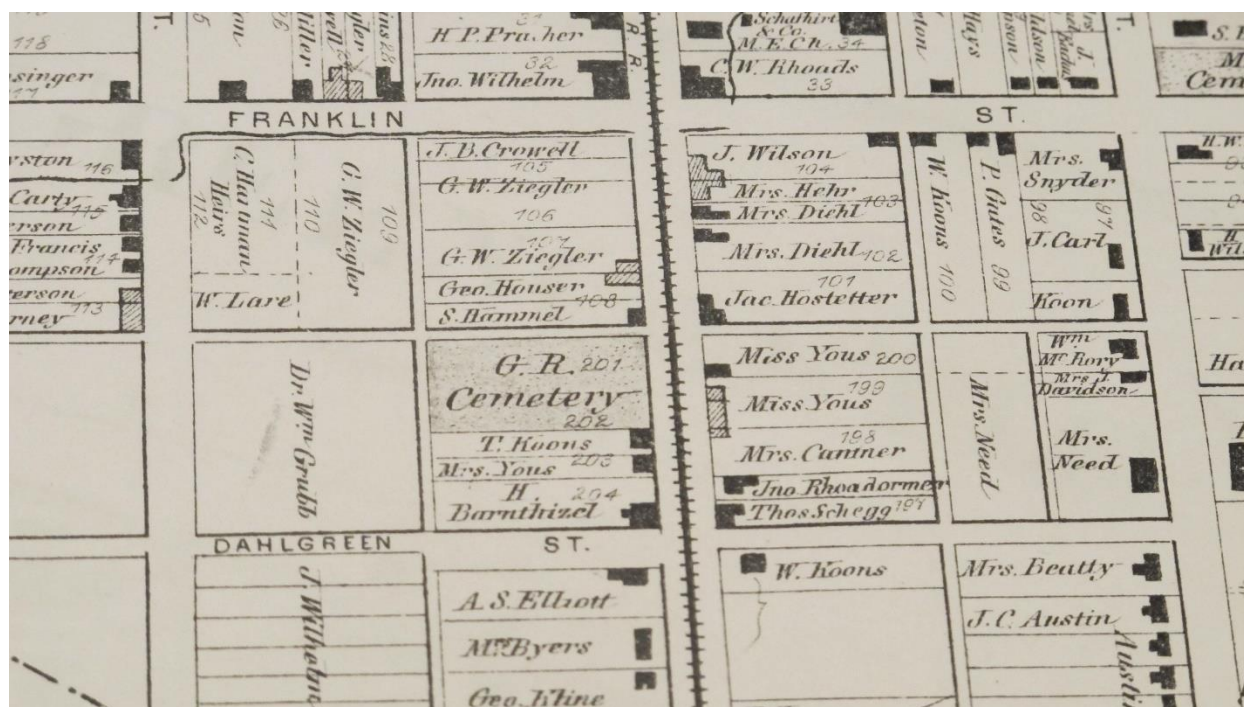 118
singer
T.
5
on
Miller
H. P. Prather
32
Jno. Wilhelm
R R.
& Co.
M. E. Ch. 34
C. W. Rhoads
33
eton
Hays
T.
S.
Cem
FRANKLIN
ST.
yston 116
Carty
115
erson
Francis
114
ompson
erson
rney 113
C. Hatman
Heirs
112
111
110
G. W. Ziegler
109
W. Lare
J. B. Crowell
105
G. W. Ziegler
106
107
G. W. Ziegler
Geo. Houser
108
S. Hammel
J. Wilson
104
Mrs. Hehr
Mrs. Diehl 103
Mrs. Diehl 102
101
Jac. Hostetter
W. Koons 100
99
Mrs.
Snyder
98
97
J. Carl
Koon
H. W.
H.
Wil
Dr. Wm Grubb
G. R. 201
Cemetery
202
T. Koons
Mrs. Yous 203
H. 204
Barnthizel
Miss Yous 200
199
Miss Yous
198
Mrs. Cantner
Jno Rhoadormer
Thos Schegg 197
Mrs. Need
Wm
Mc Rory
Mrs J.
Davidson
Mrs.
Need
Ha
DAHLGREEN
ST.
J. Wilhelm
A. S. Elliott
Byers
Geo. Kline
W. Koons
Mrs. Beatty
J. C. Austin
Austin